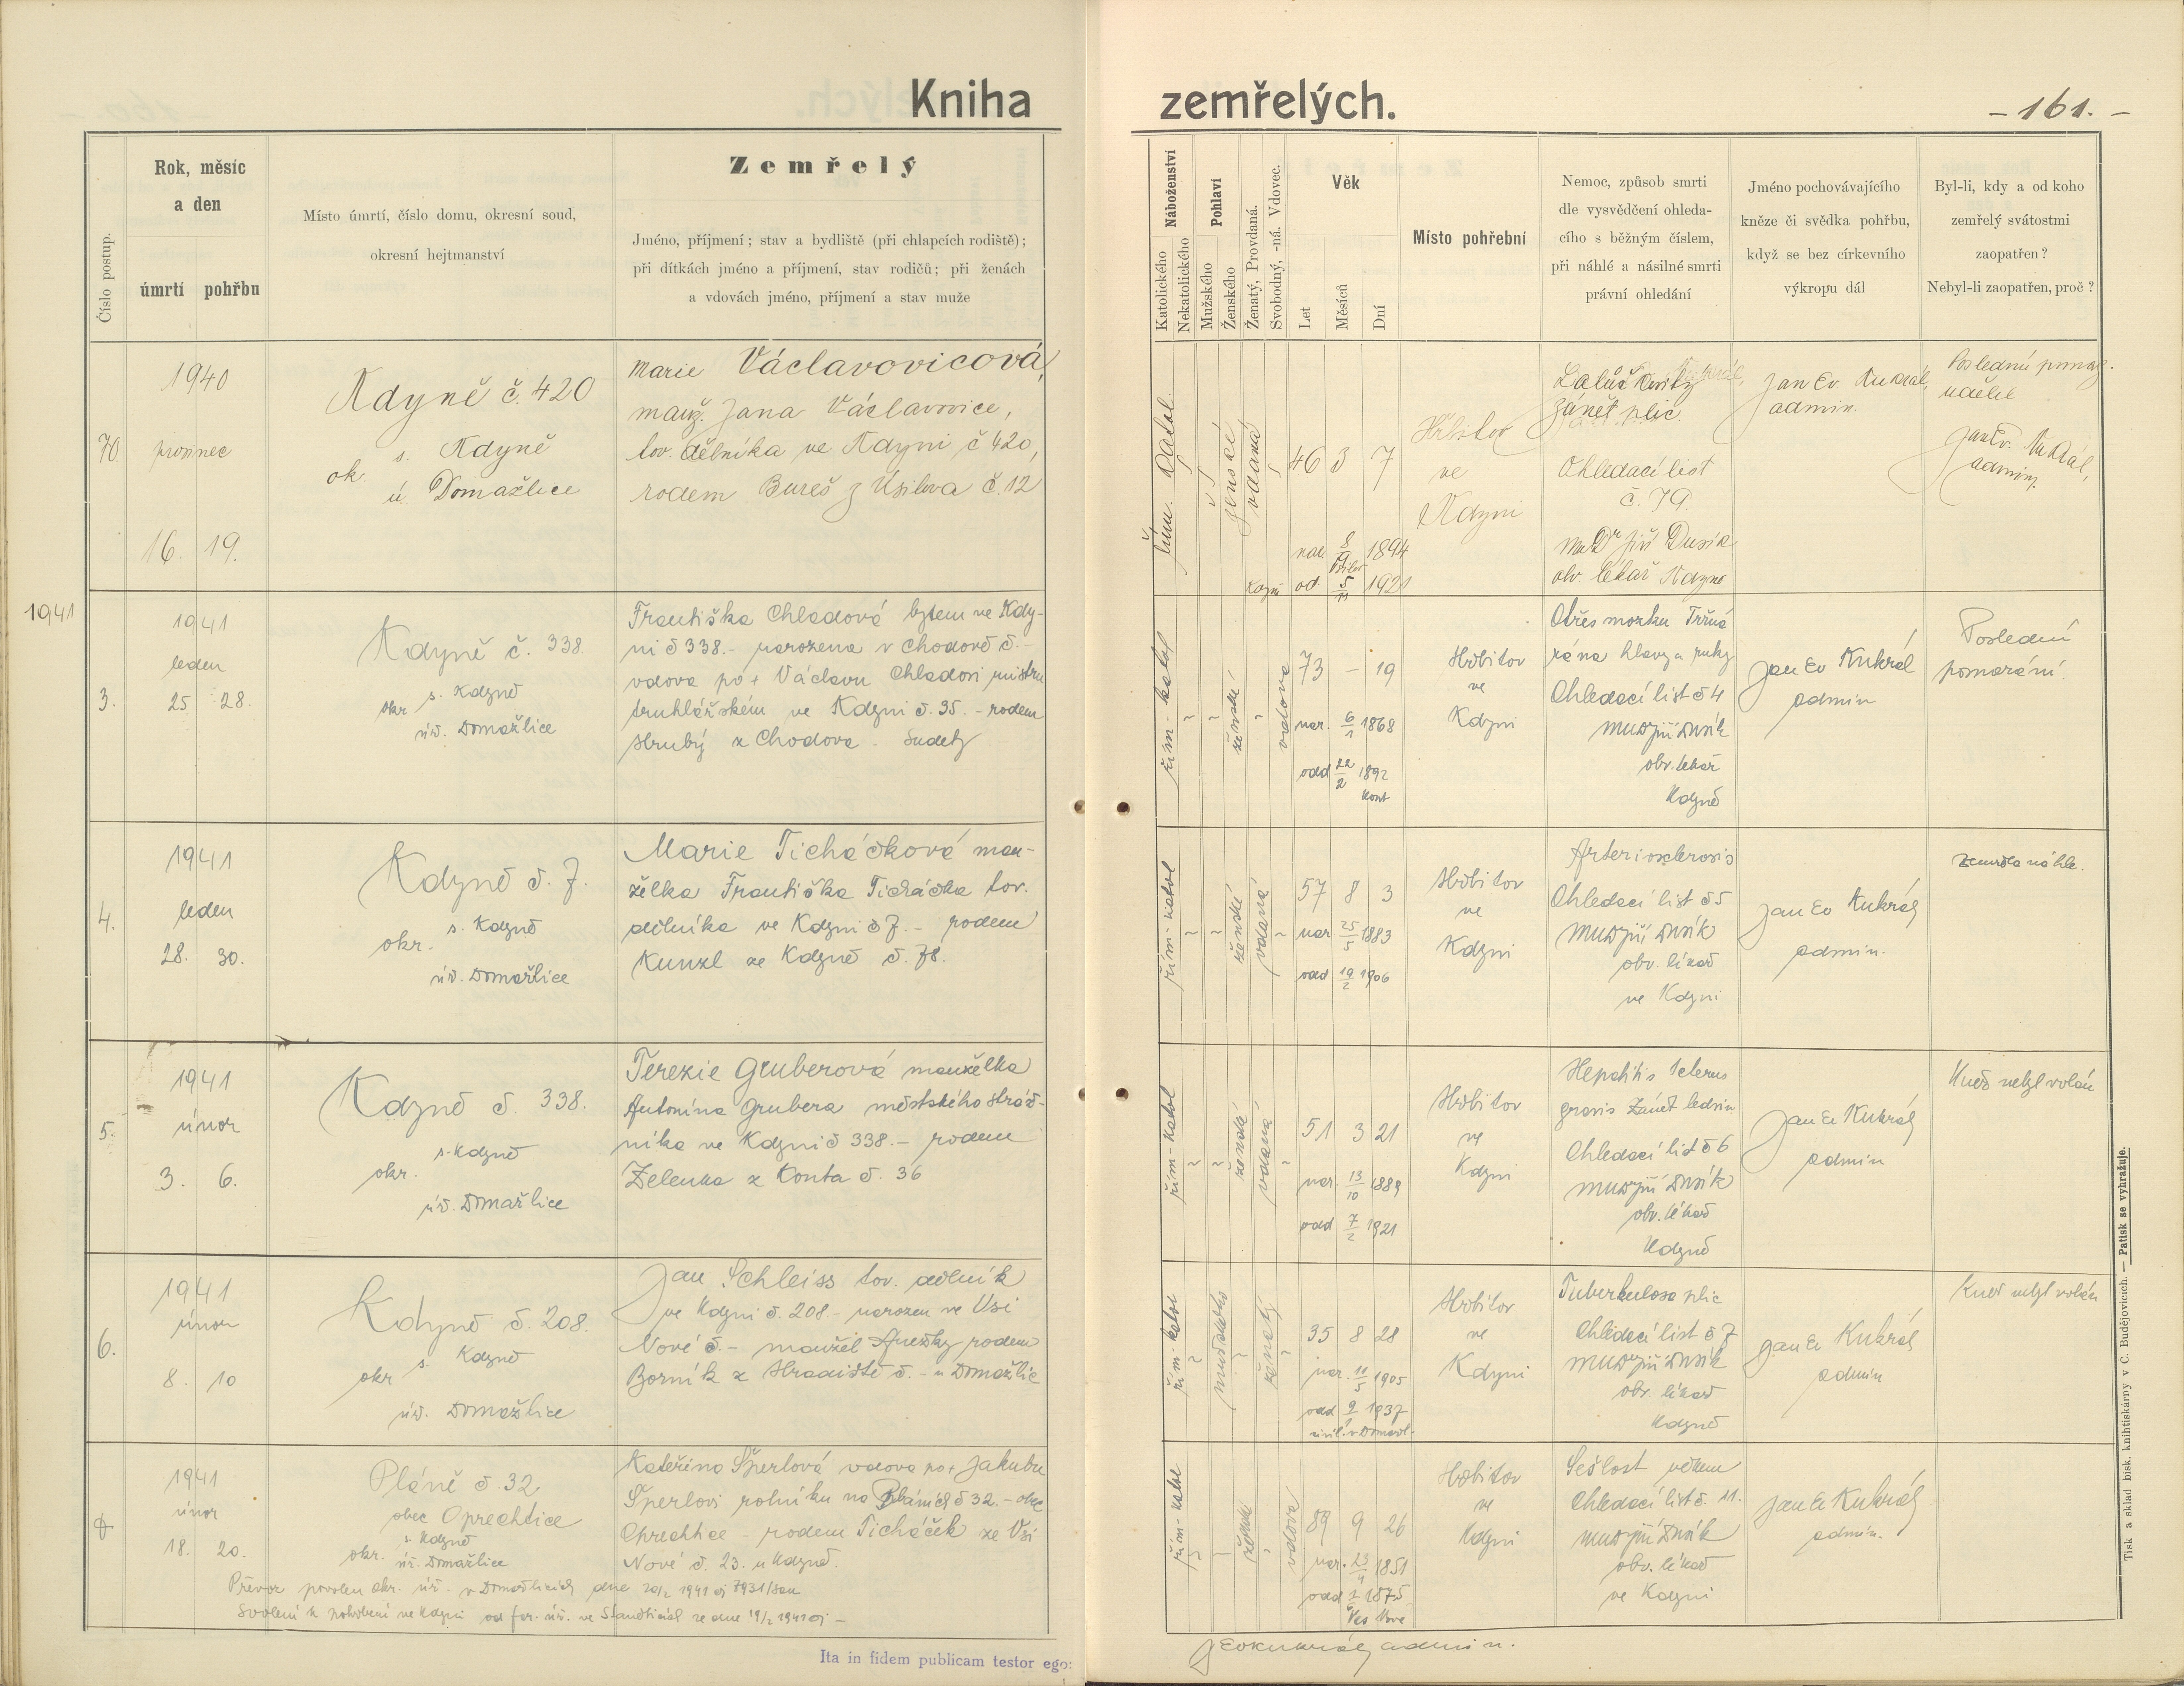 Kniha zemřelých.
- 161. -
Číslo postup.
Rok, měsíc
a den
úmrtí pohřbu
Místo úmrtí, číslo domu, okresní soud,
okresní hejtmanství
Zemřelý
Jméno, příjmení; stav a bydliště (při chlapcích rodiště);
při dítkách jméno a příjmení, stav rodičů; při ženách
a vdovách jméno, příjmení a stav muže
Náboženství
Katolického
Nekatolického
Pohlaví
Mužského
Ženského
Ženatý, Provdaná.
Svobodný, -ná. Vdovec.
Věk
Let
Měsíců
Dní
Místo pohřební
Nemoc, způsob smrti
dle vysvědčení ohleda-
cího s běžným číslem,
při náhlé a násilné smrti
právní ohledání
Jméno pochovávajícího
kněze či svědka pohřbu,
když se bez církevního
výkropu dál
Byl-li, kdy a od koho
zemřelý svátostmi
zaopatřen?
Nebyl-li zaopatřen, proč?
70.
1940
prosinec
16. 19.
Kdyně č. 420
s. Kdyně
ok.
ú. Domažlice
Marie Václavovicová,
manž. Jana Václavovice,
tov. dělníka ve Kdyni č 420,
rodem Bureš z Úsilova č. 12
řím. katol.
ženské
vdaná
46 3 7
nar. 8/9 1894
Úsilov
Kdyň od. 5/11 1921
Hřbitov
ve
Kdyni
zánět plic
Ohledací list
č. 79.
MUDr Jiří Dusík
obv. lékař Kdyně
Jan Ev. Kukrál,
admin.
Poslední pomaz.
udělil
Jan Ev. Kukrál,
admin.
1941
3.
1941
leden
25 28.
Kdyně č. 338.
s. Kdyně
okr
úř. Domažlice
Františka Chladová bytem ve Kdy-
ni č 338.- narozena v Chodově č.-
vdova po + Václavu Chladovi mistru
truhlářském ve Kdyni č. 35. - rodem
Hrubý z Chodova. Sudety
řím - katol
ženské
vdova
73 - 19
nar. 6/1 1868
odd 22/2 1892
Kout
Hřbitov
ve
Kdyni
Otřes mozku Tržná
rána hlavy a ruky
Ohledací list č 4
MUDr Jiří Dusík
obv. lékař
Kdyně
Jan Ev Kukrál
admin
Poslední
pomazání.
4.
1941
leden
28. 30.
Kdyně č. 7.
s. Kdyně
okr.
úř. Domažlice
Marie Ticháčková man-
želka Františka Ticháčka tov.
dělníka ve Kdyni č 7. - rodem
Kunzl ze Kdyně č. 78.
řím - katol
ženské
vdaná
57 8 3
nar 25/5 1883
odd 19/2 1906
Hřbitov
ve
Kdyni
Arteriosclerosis
Ohledací list č 5
MUDr Jiří Dusík
obv. lékař
ve Kdyni
Jan Ev Kukrál
admin.
Zemřela náhle.
5.
1941
únor
3. 6.
Kdyně č. 338.
s. Kdyně
okr.
úř. Domažlice
Terezie Gruberová manželka
Antonína Grubera městského stráž-
níka ve Kdyni č 338.- rodem
Zelenka z Kouta č. 36
řím - katol
ženské
vdaná
51 3 21
nar. 13/10 1889
odd 7/2 1921
Hřbitov
ve
Kdyni
Hepatitis Icterus
gravis Zánět ledvin
Ohledací list č 6
MUDr Jiří Dusík
obv. lékař
Kdyně
Jan Ev Kukrál
admin
Kněz nebyl volán
6.
1941
únor
8. 10
Kdyně č. 208.
s. Kdyně
okr
úř. Domažlice
Jan Schleiss tov. dělník
ve Kdyni č. 208.- narozen ve Vsi
Nové č.- manžel Anežky rodem
Borník z Hradiště č. - u Domažlic
řím - katol
mužského
ženatý
35 8 28
nar. 11/5 1905
odd 9/1 1937
civil. v Domažl.
Hřbitov
ve
Kdyni
Tuberkulosa plic
Ohledací list č 7
MUDr Jiří Dusík
obv. lékař
Kdyně
Jan Ev Kukrál
admin
Kněz nebyl volán
1941
únor
18. 20.
Pláně č. 32
obec Oprechtice
s. Kdyně
okr.
úř. Domažlice
Kateřina Šperlová vdova po + Jakubu
Šperlovi rolníku na Pláních č 32. - obec
Oprechtice - rodem Ticháček ze Vsi
Nové č. 23. u Kdyně.
Převoz povolen okr. úř. v Domažlicích dne 20/2 1941 čj 7931/San
Svolení k pohřbení ve Kdyni od far. úř. ve ze dne 19/2 1941 čj -
řím - katol
vdova
89 9 26
nar. 23/4 1851
odd 1875
Ves Nová
Hřbitov
ve
Kdyni
Sešlost věkem
Ohledací list č. 11.
MUDr Jiří Dusík
obv. lékař
ve Kdyni
Jan Ev Kukrál
admin.
J Ev Kukrál admin.
Ita in fidem publicam testor ego:
Tisk a sklad bisk. knihtiskárny v Č. Budějovicích. — Patisk se vyhražuje.